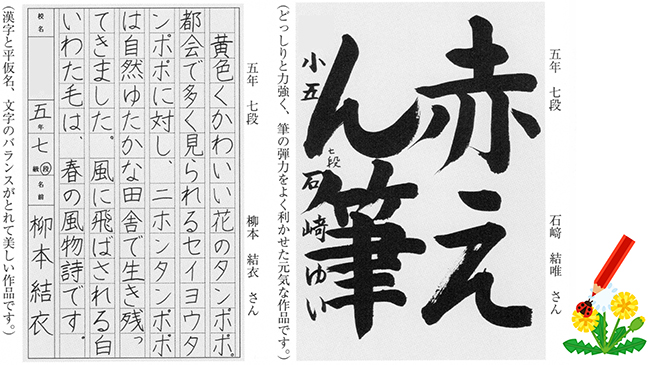 五年 七段
石﨑 結唯 さん
赤え
ん筆
小五
七段
石﨑ゆい
(どっしりと力強く、筆の弾力をよく利かせた元気な作品です。)
五年 七段
柳本 結衣 さん
黄色くかわいい花のタンポポ。
都会で多く見られるセイヨウタ
ンポポに対し、ニホンタンポポ
は自然ゆたかな田舎で生き残っ
てきました。風に飛ばされる白
いわた毛は、春の風物詩です。
校名
五年七級段
名前
柳本結衣
(漢字と平仮名、文字のバランスがとれて美しい作品です。)